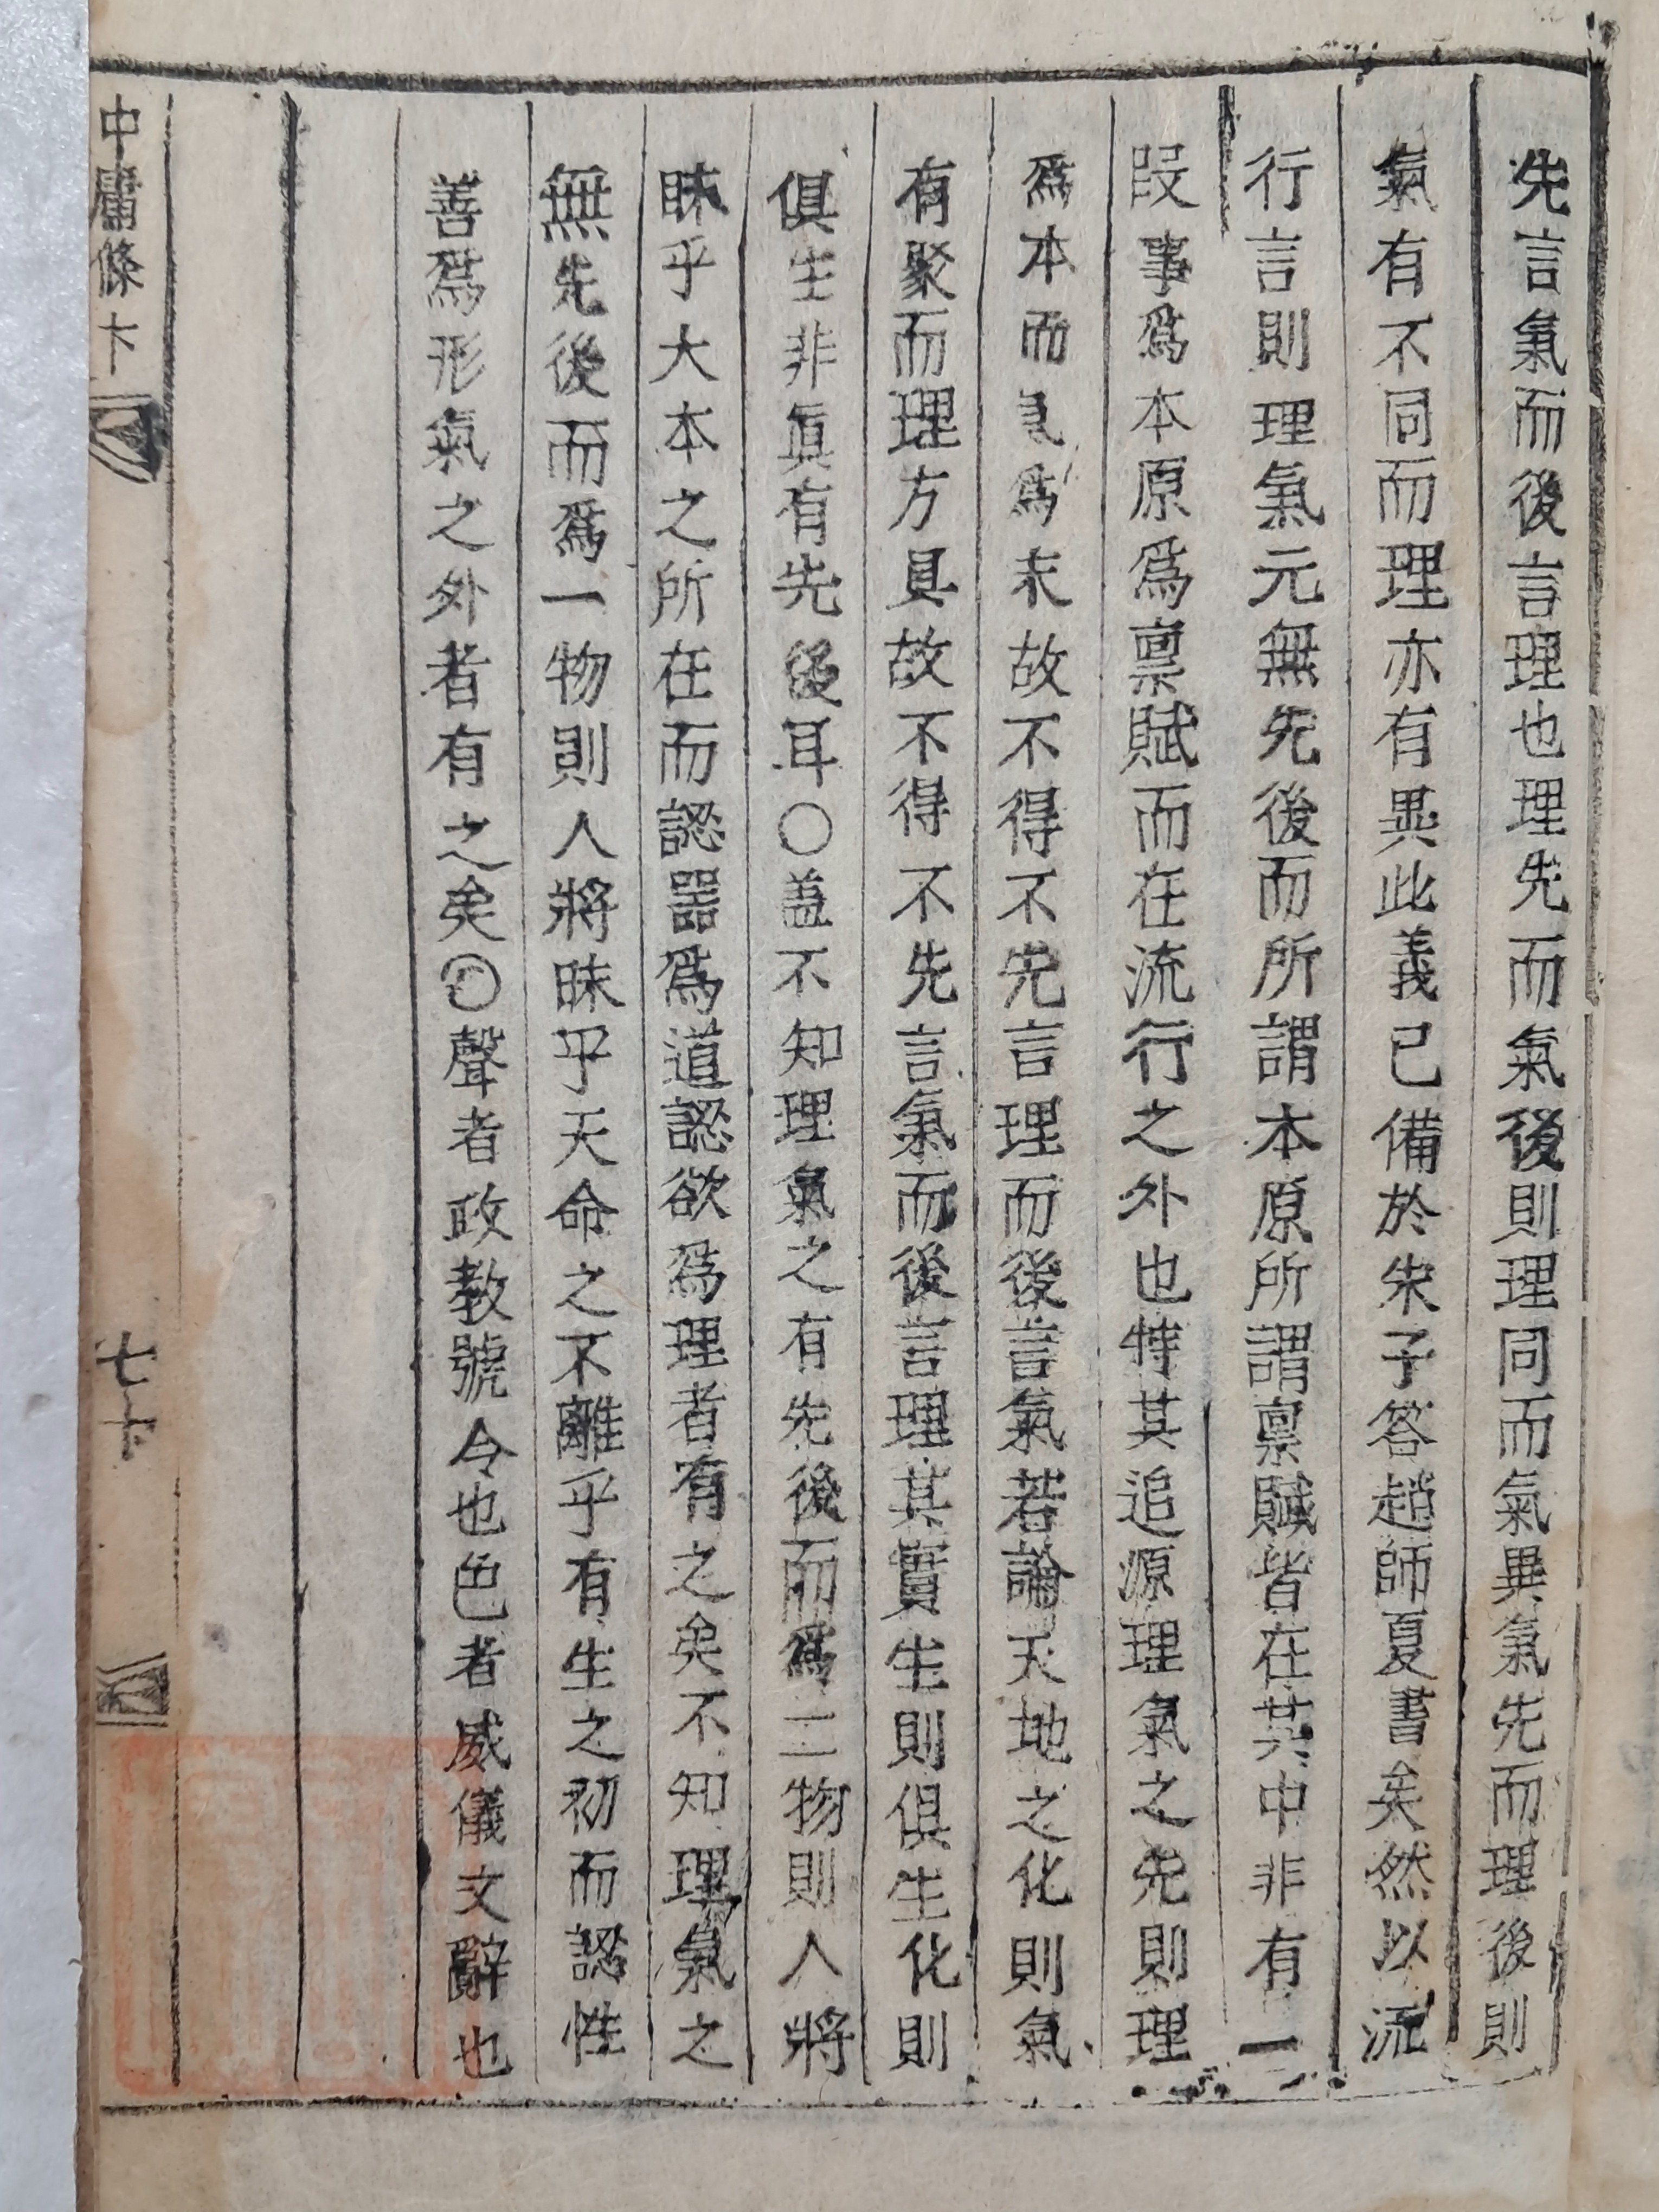 先言氣而後言理也理先而氣後則理同而氣異氣先而理後則
氣有不同而理亦有異此義已備於朱子答趙師夏書矣然以流
行言則理氣元無先後而所謂本原所謂禀賦皆在其中非有一
段事爲本原爲禀賦而在流行之外也特其追源理氣之先則理
爲本而氣爲末故不得不先言理而後言氣若論天地之化則氣
有聚而理方具故不得不先言氣而後言理其實生則俱生化則
俱生非眞有先後耳○盖不知理氣之有先後而爲二物則人將
昧乎大本之所在而認器爲道認欲爲理者有之矣不知理氣之
無先後而爲一物則人將昧乎天命之不離乎有生之初而認性
善爲形氣之外者有之矣○聲者政教號令也色者威儀文辭也
中庸條卞
七十